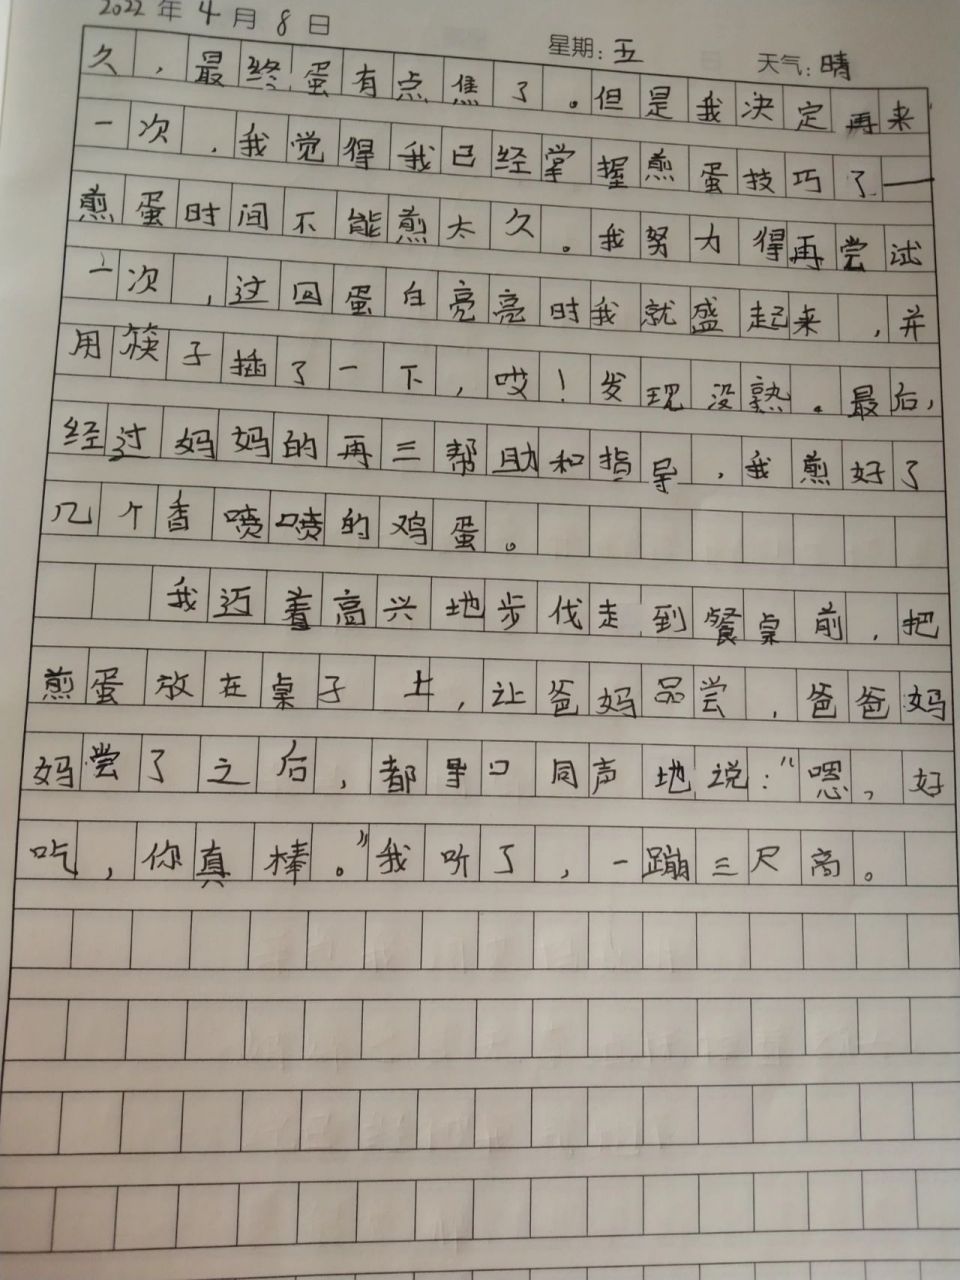 2022年4月8日 星期:五 天气:晴
久,最终蛋有点焦了。但是我决定再来
一次,我觉得我已经掌握煎蛋技巧了——
煎蛋时间不能煎太久。我努力得再尝试
一次,这回蛋白亮亮时我就盛起来,并
用筷子插了一下,哎!发现没熟。最后,
经过妈妈的再三帮助和指导,我煎好了
几个香喷喷的鸡蛋。
我迈着高兴地步伐走到餐桌前,把
煎蛋放在桌子上,让爸妈品尝,爸爸妈
妈尝了之后,都异口同声地说:"嗯,好
吃,你真棒。"我听了,一蹦三尺高。